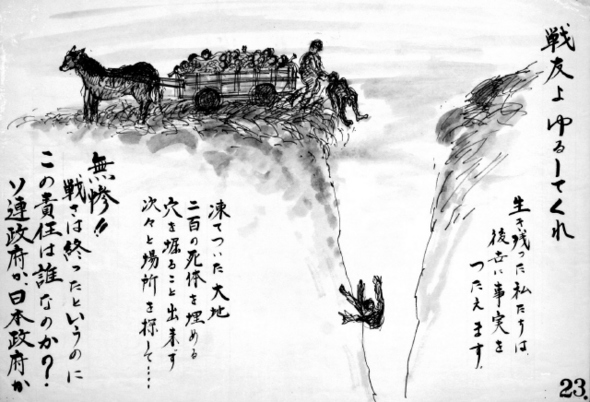 戦友よゆるしてくれ
生き残った私たちは
後世に事実を
つたえます。
凍てついた大地
二百の死体を埋める
穴を掘ること出来ず
次々と場所を探して……
無惨!!
戦さは終ったというのに
この責任は誰なのか?
ソ連政府か、日本政府か
23.